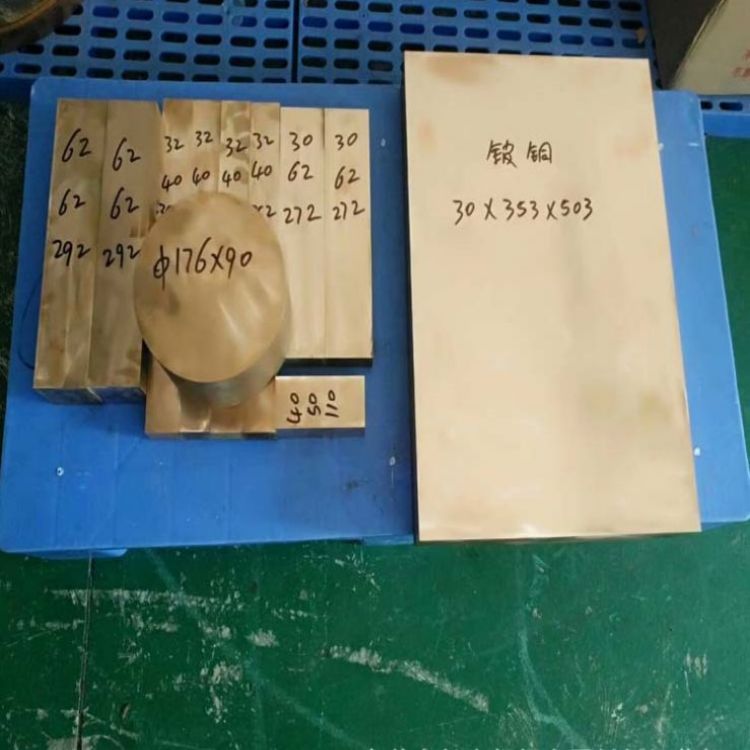 62 62 32 32 32 32 30 30
62 62 40 40 40 40 62 62
292 292 272 272
φ176X90
40
50
110
铍铜
30X353X503